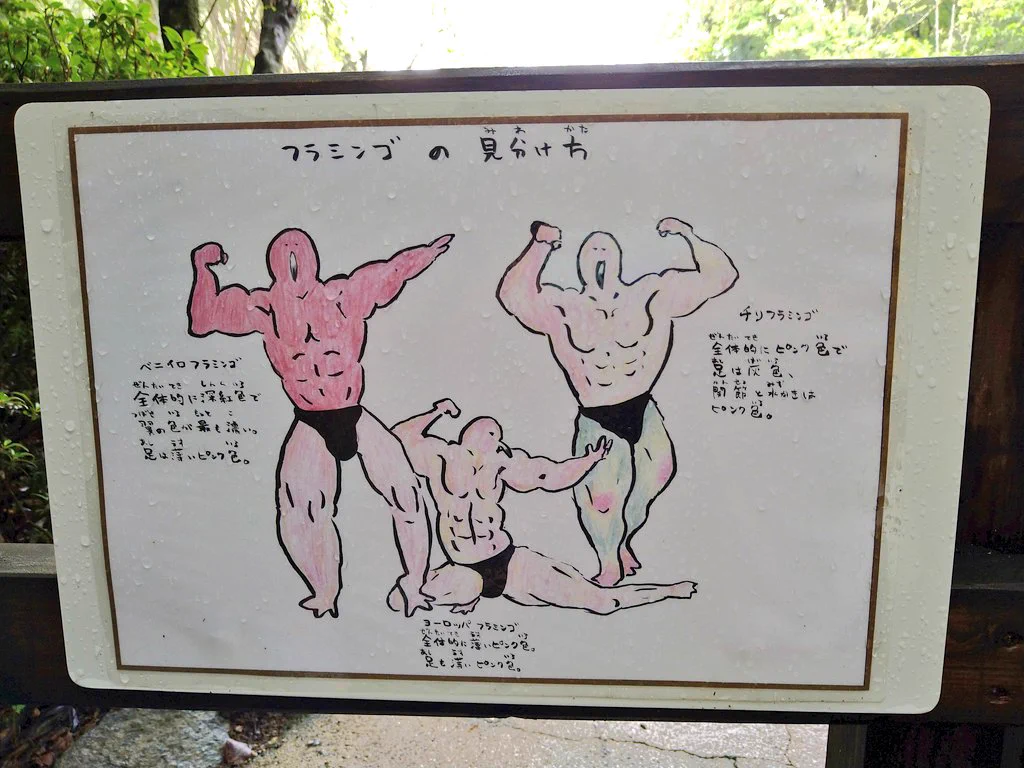 み わ かた
フラミンゴ の 見分け方
ベニイロフラミンゴ
ぜんたいてき しんく いろ
全体的に深紅色で
つばさ いろ もっと こ
翼の色が最も濃い。
あし うす いろ
足は薄いピンク色。
チリフラミンゴ
ぜんたいてき いろ
全体的にピンク色で
あし はい いろ
足は灰色、
かんせつ みず
関節と水かきは
いろ
ピンク色。
ヨーロッパフラミンゴ
ぜんたいてき うす いろ
全体的に薄いピンク色。
あし うす いろ
足も薄いピンク色。